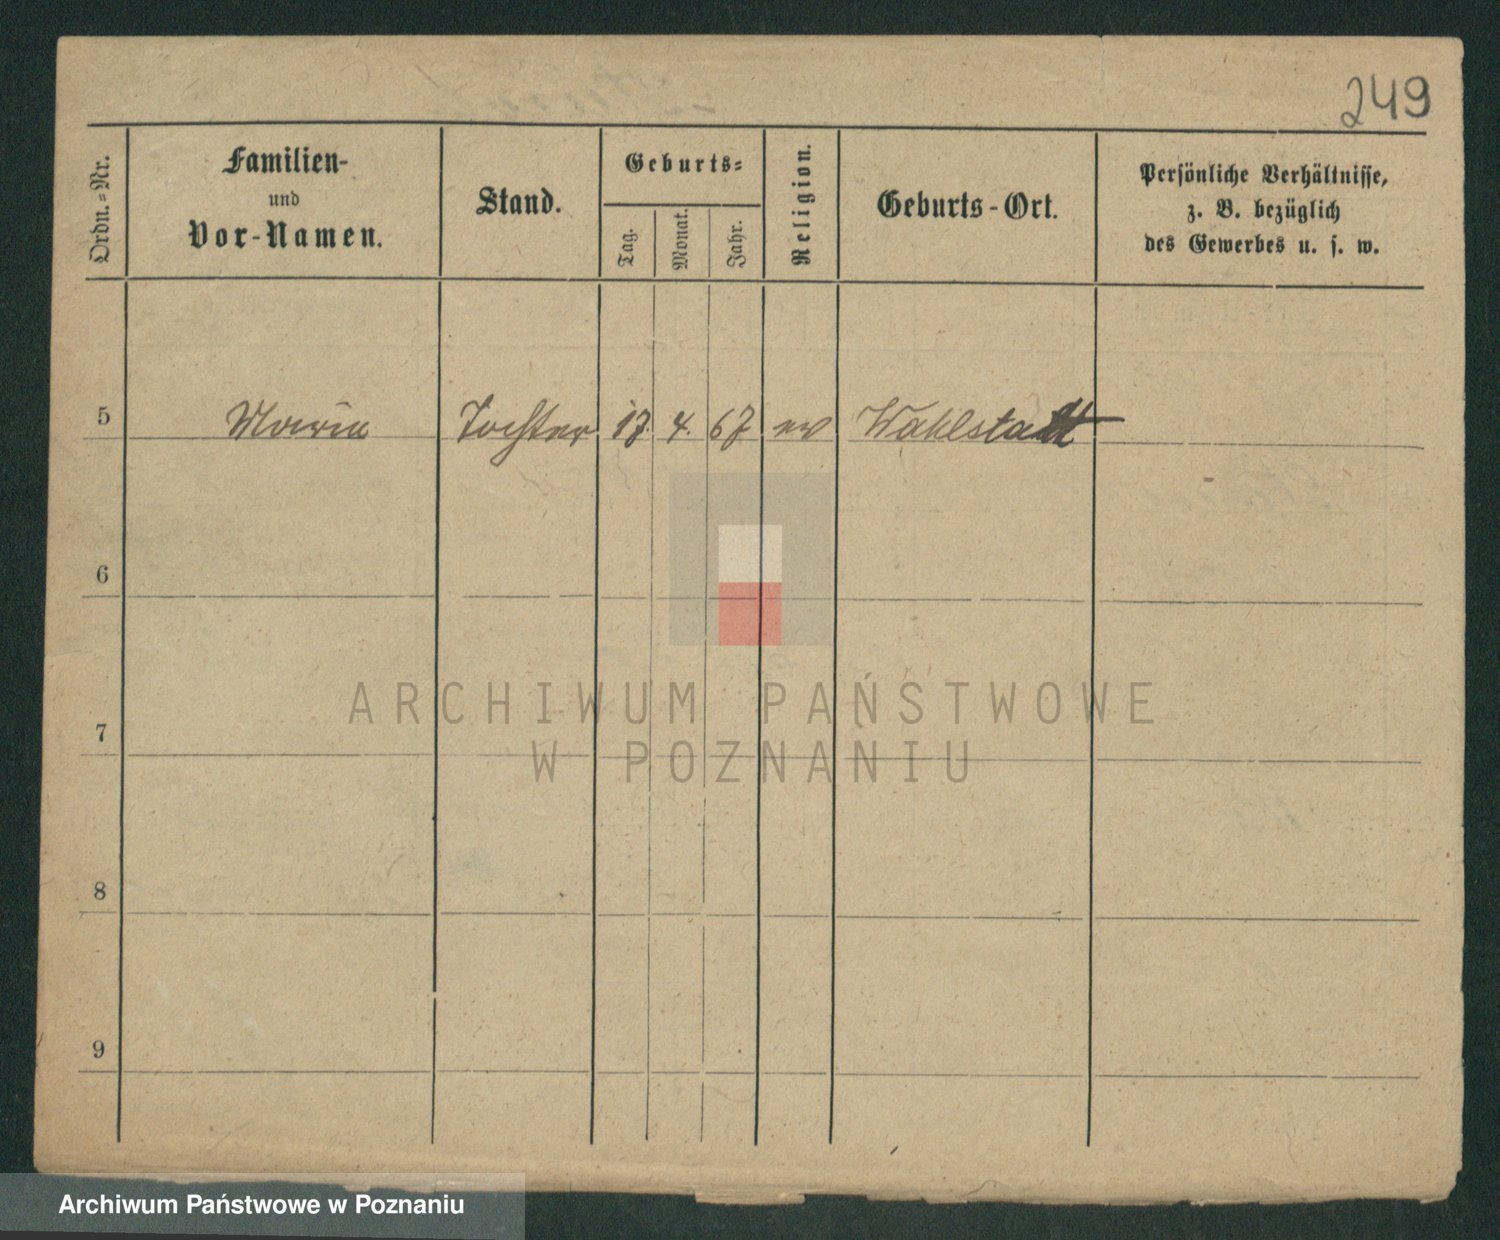 249
Ordn.-Nr.
Familien-
und
Vor-Namen.
Stand.
Geburts-
Tag.
Monat.
Jahr.
Religion.
Geburts-Ort.
Persönliche Verhältnisse,
z. B. bezüglich
des Gewerbes u. s. w.
5 Maria Tochter 17. 4. 67 ev Wahlstatt
6
7
8
9
ARCHIWUM PAŃSTWOWE
W POZNANIU
Archiwum Państwowe w Poznaniu